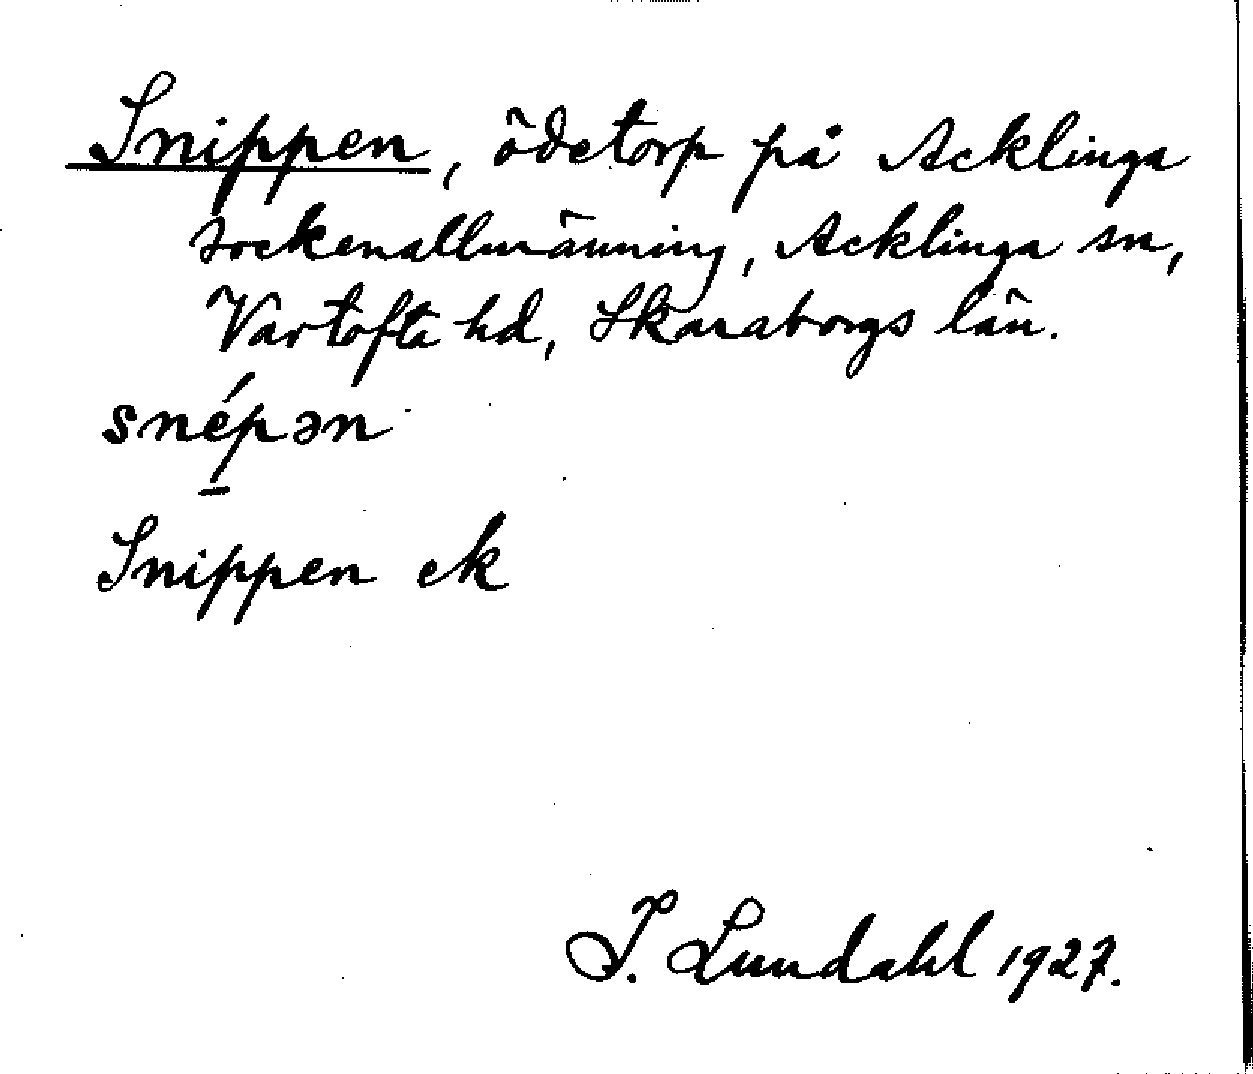 Snippen, ödetorp på Acklinga
sockenallmänning, Acklinga sn,
Vartofta hd, Skaraborgs län.
snép̱ən
Snippen ek
I. Lundahl 1927.